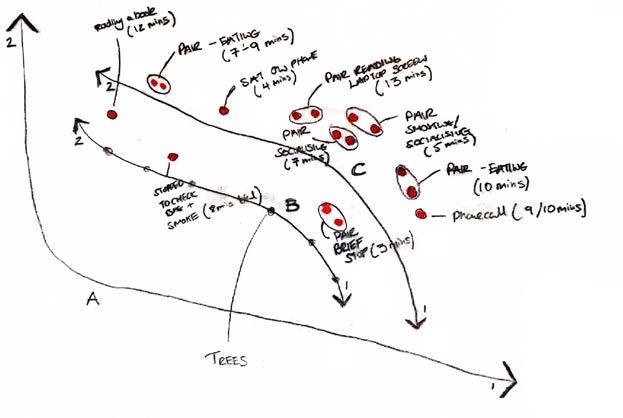 reading a book
(12 mins)
PAIR - EATING
(7-9 mins)
SAT ON PHONE
(4 mins)
PAIR READING
LAPTOP SCREEN
(13 mins)
PAIR
SMOKING/
SOCIALISING
(5 mins)
PAIR
SOCIALISING
(7 mins)
PAIR - EATING
(10 mins)
phonecall (9/10 mins)
STOPPED
TO CHECK
BAG +
SMOKE
PAIR
BRIEF
STOP (3 mins)
TREES
A
B
C
2
2
2
1
1
1